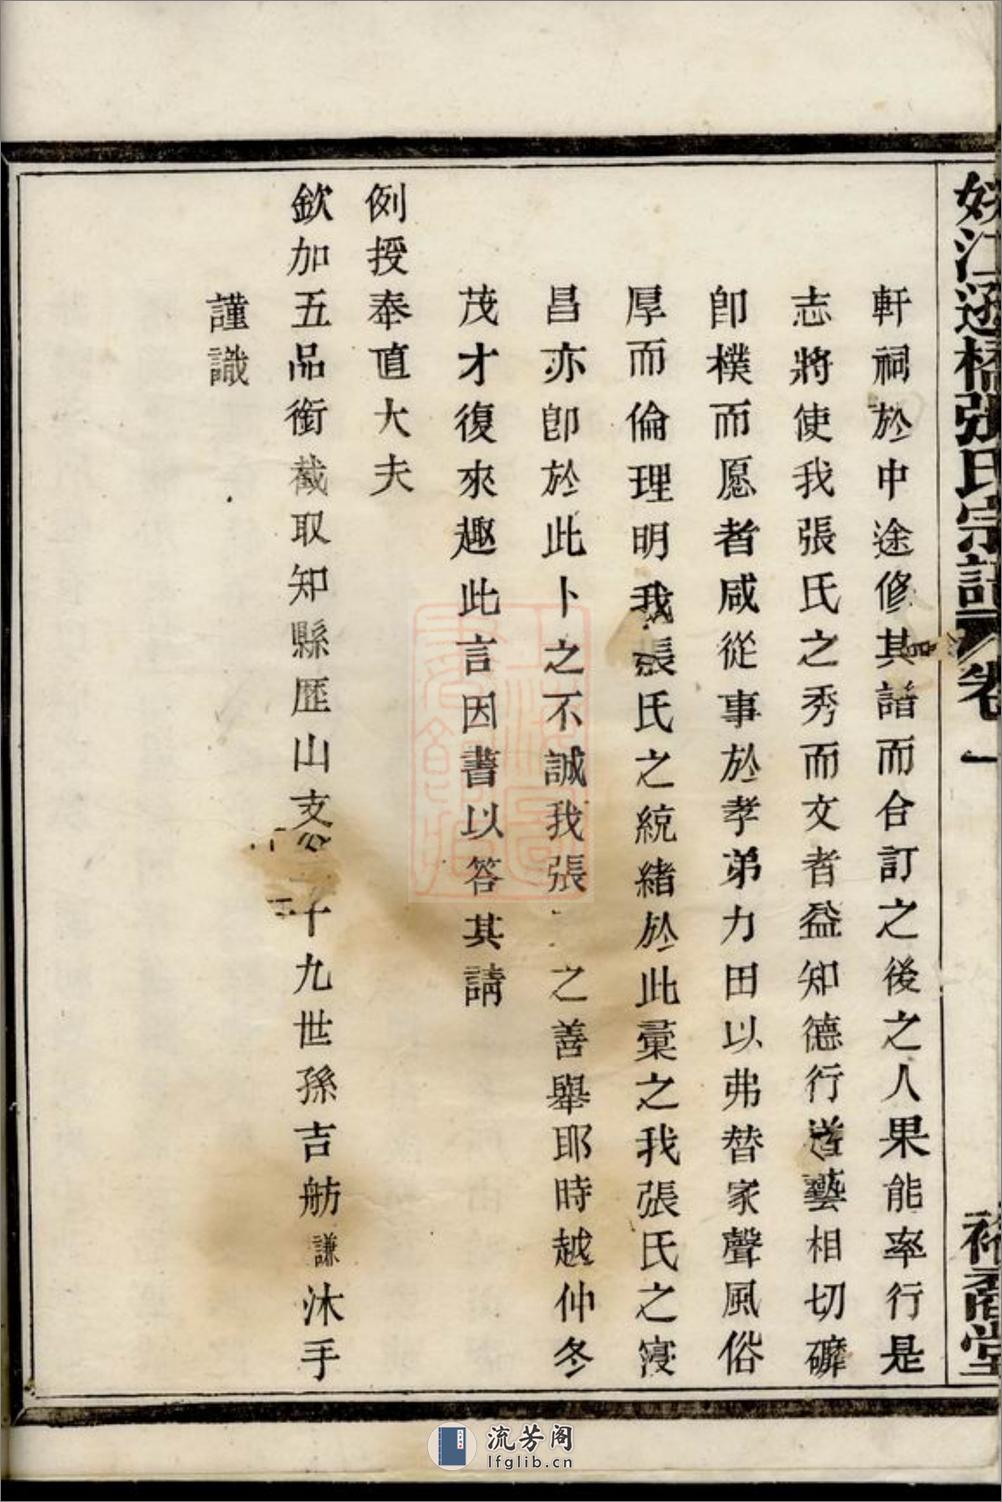 姚江涇橋張氏宗譜 卷一 裕齋堂
軒祠於中途修其譜而合訂之後之人果能率行是
志將使我張氏之秀而文者益知德行道藝相切礳
卽樸而愿者咸從事於孝弟力田以弗替家聲風俗
厚而倫理明我張氏之統緒於此彙之我張氏之寖
昌亦卽於此卜之不誠我張之善舉耶時越仲冬
茂才復來趣此言因書以答其請
例授奉直大夫
欽加五品銜截取知縣歷山支十九世孫吉舫謙沐手
謹識
流芳阁
lfglib.cn